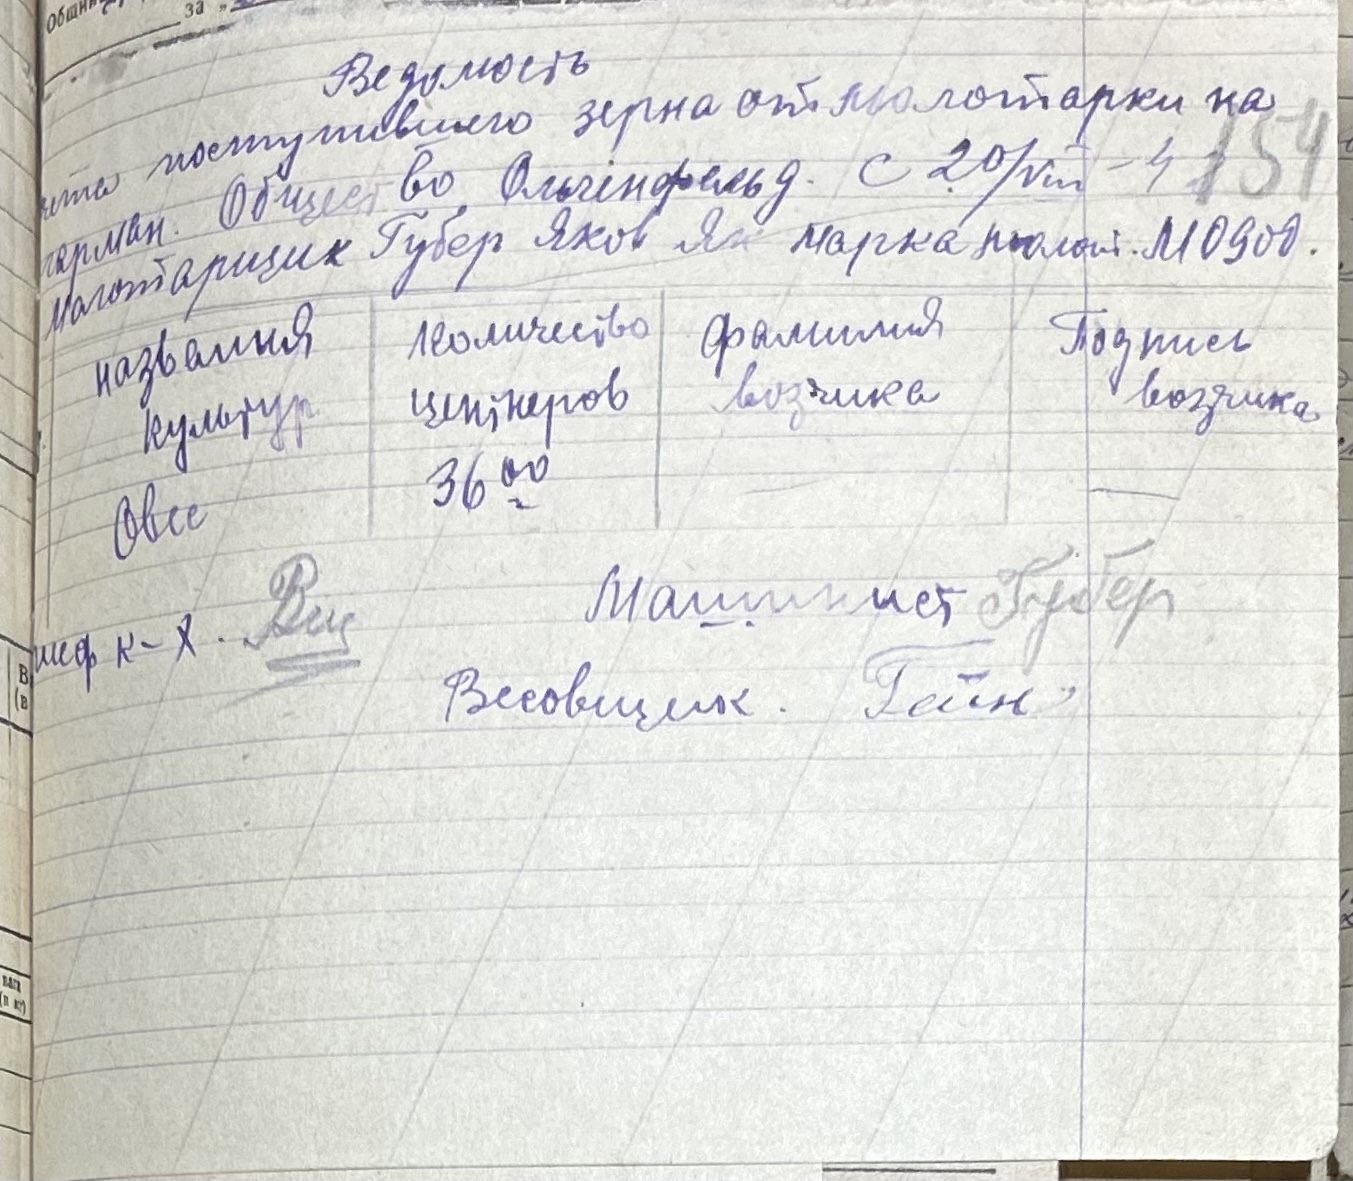 за "
Ведомость
поступившего зерна от молотарки на
гарман. Общество Ольгенфельд. с 20/VIII - 4
154
Молотарщик Губер Яков Як марка молот. МО900.
названия культур
Количество центнеров
фамилия возчика
Подпись возчика
Овес
36 00
шеф к-х.
Машинист Губер
Весовщик. Гейн